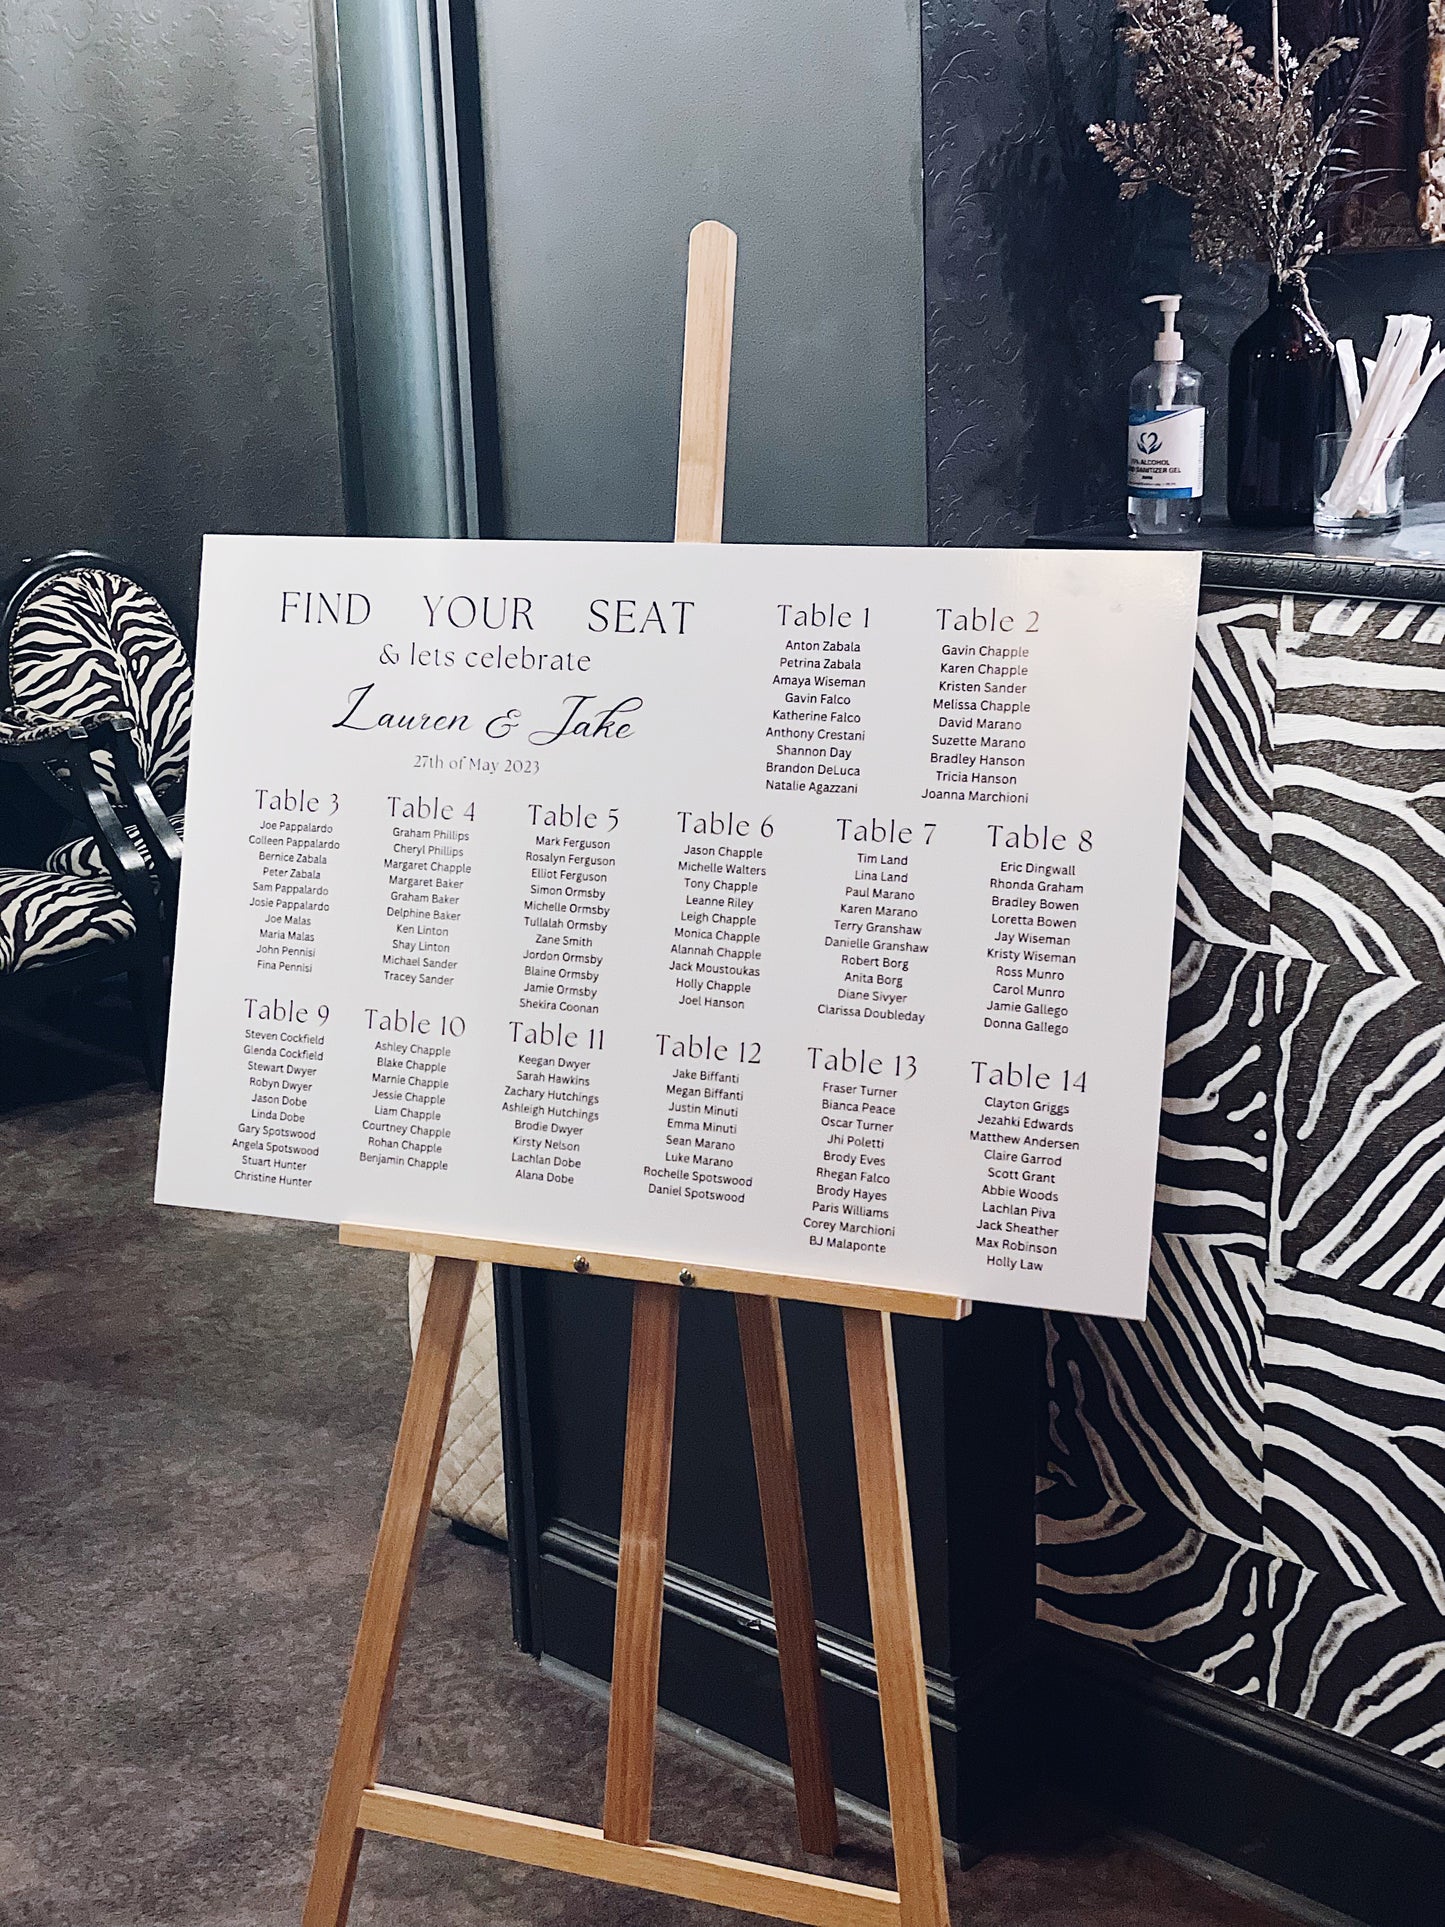 FIND YOUR SEAT
& lets celebrate
Lauren & Jake
27th of May 2023
Table 1
Anton Zabala
Petrina Zabala
Amaya Wiseman
Gavin Falco
Katherine Falco
Anthony Crestani
Shannon Day
Brandon DeLuca
Natalie Agazzani
Table 2
Gavin Chapple
Karen Chapple
Kristen Sander
Melissa Chapple
David Marano
Suzette Marano
Bradley Hanson
Tricia Hanson
Joanna Marchioni
Table 3
Joe Pappalardo
Colleen Pappalardo
Bernice Zabala
Peter Zabala
Sam Pappalardo
Josie Pappalardo
Joe Malas
Maria Malas
John Pennisi
Fina Pennisi
Table 4
Graham Phillips
Cheryl Phillips
Margaret Chapple
Margaret Baker
Graham Baker
Delphine Baker
Ken Linton
Shay Linton
Michael Sander
Tracey Sander
Table 5
Mark Ferguson
Rosalyn Ferguson
Elliot Ferguson
Simon Ormsby
Michelle Ormsby
Tullalah Ormsby
Zane Smith
Jordon Ormsby
Blaine Ormsby
Jamie Ormsby
Shekira Coonan
Table 6
Jason Chapple
Michelle Walters
Tony Chapple
Leanne Riley
Leigh Chapple
Monica Chapple
Alannah Chapple
Jack Moustoukas
Holly Chapple
Joel Hanson
Table 7
Tim Land
Lina Land
Paul Marano
Karen Marano
Terry Granshaw
Danielle Granshaw
Robert Borg
Anita Borg
Diane Sivyer
Clarissa Doubleday
Table 8
Eric Dingwall
Rhonda Graham
Bradley Bowen
Loretta Bowen
Jay Wiseman
Kristy Wiseman
Ross Munro
Carol Munro
Jamie Gallego
Donna Gallego
Table 9
Steven Cockfield
Glenda Cockfield
Stewart Dwyer
Robyn Dwyer
Jason Dobe
Linda Dobe
Gary Spotswood
Angela Spotswood
Stuart Hunter
Christine Hunter
Table 10
Ashley Chapple
Blake Chapple
Marnie Chapple
Jessie Chapple
Liam Chapple
Courtney Chapple
Rohan Chapple
Benjamin Chapple
Table 11
Keegan Dwyer
Sarah Hawkins
Zachary Hutchings
Ashleigh Hutchings
Brodie Dwyer
Kirsty Nelson
Lachlan Dobe
Alana Dobe
Table 12
Jake Biffanti
Megan Biffanti
Justin Minuti
Emma Minuti
Sean Marano
Luke Marano
Rochelle Spotswood
Daniel Spotswood
Table 13
Fraser Turner
Bianca Peace
Oscar Turner
Jhi Poletti
Brody Eves
Rhegan Falco
Brody Hayes
Paris Williams
Corey Marchioni
BJ Malaponte
Table 14
Clayton Griggs
Jezahki Edwards
Matthew Andersen
Claire Garrod
Scott Grant
Abbie Woods
Lachlan Piva
Jack Sheather
Max Robinson
Holly Law
ALCOHOL
SANITIZER GEL